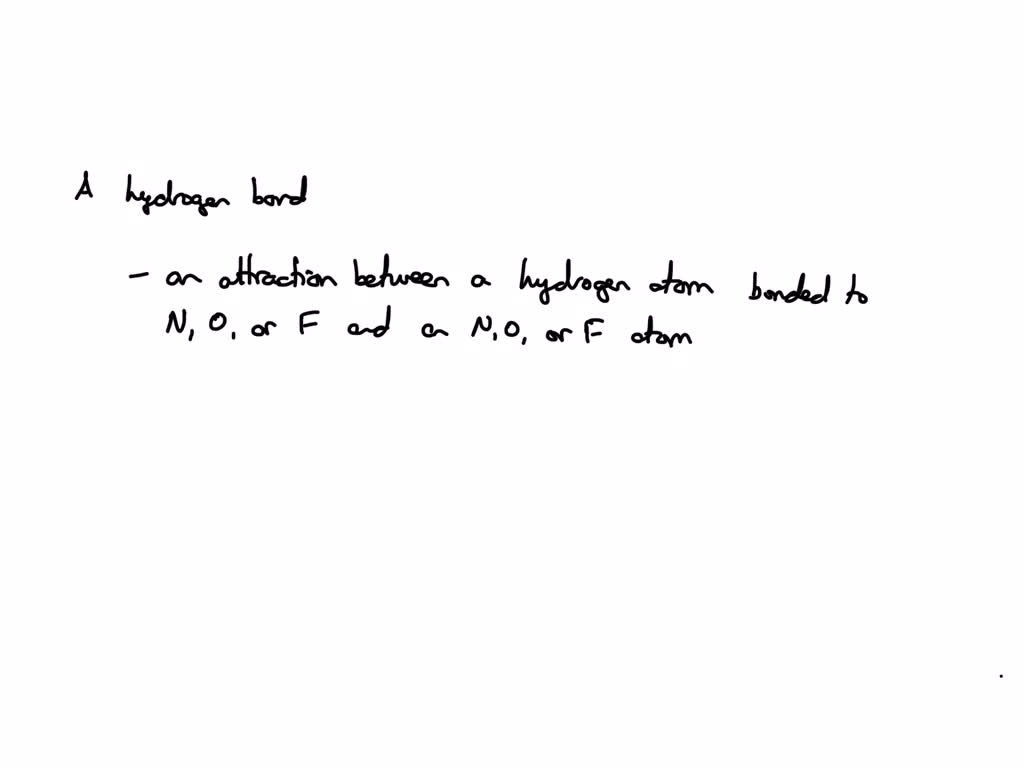 A hydrogen bond
- an attraction between a hydrogen atom bonded to
N, O, or F and an N, O, or F atom